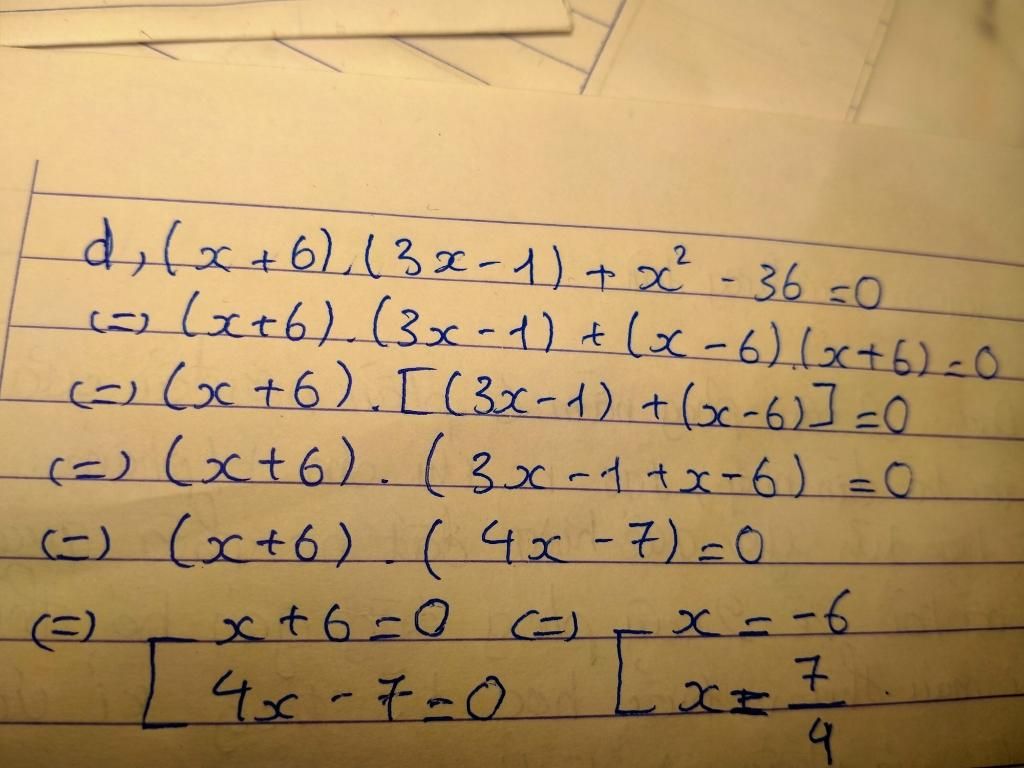 d, (x+6).(3x-1) + x² - 36 = 0
(=) (x+6).(3x-1) + (x-6).(x+6) = 0
(=) (x+6).[(3x-1) + (x-6)] = 0
(=) (x+6).(3x-1+x-6) = 0
(=) (x+6).(4x-7) = 0
(=) [ x+6=0 (=) [ x = -6
4x-7=0 x = 7/4.